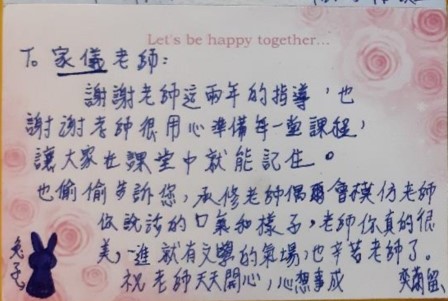 Let's be happy together...
To 家儀老師:
謝謝老師這兩年的指導,也
謝謝老師很用心準備每一堂課程,
讓大家在課堂中就能記住。
也偷偷告訴您,承修老師偶爾會模仿老師
你說話的口氣和樣子,老師你真的很
美,一進就有文學的氣場,也辛苦老師了。
祝老師天天開心,心想事成
兔子
留